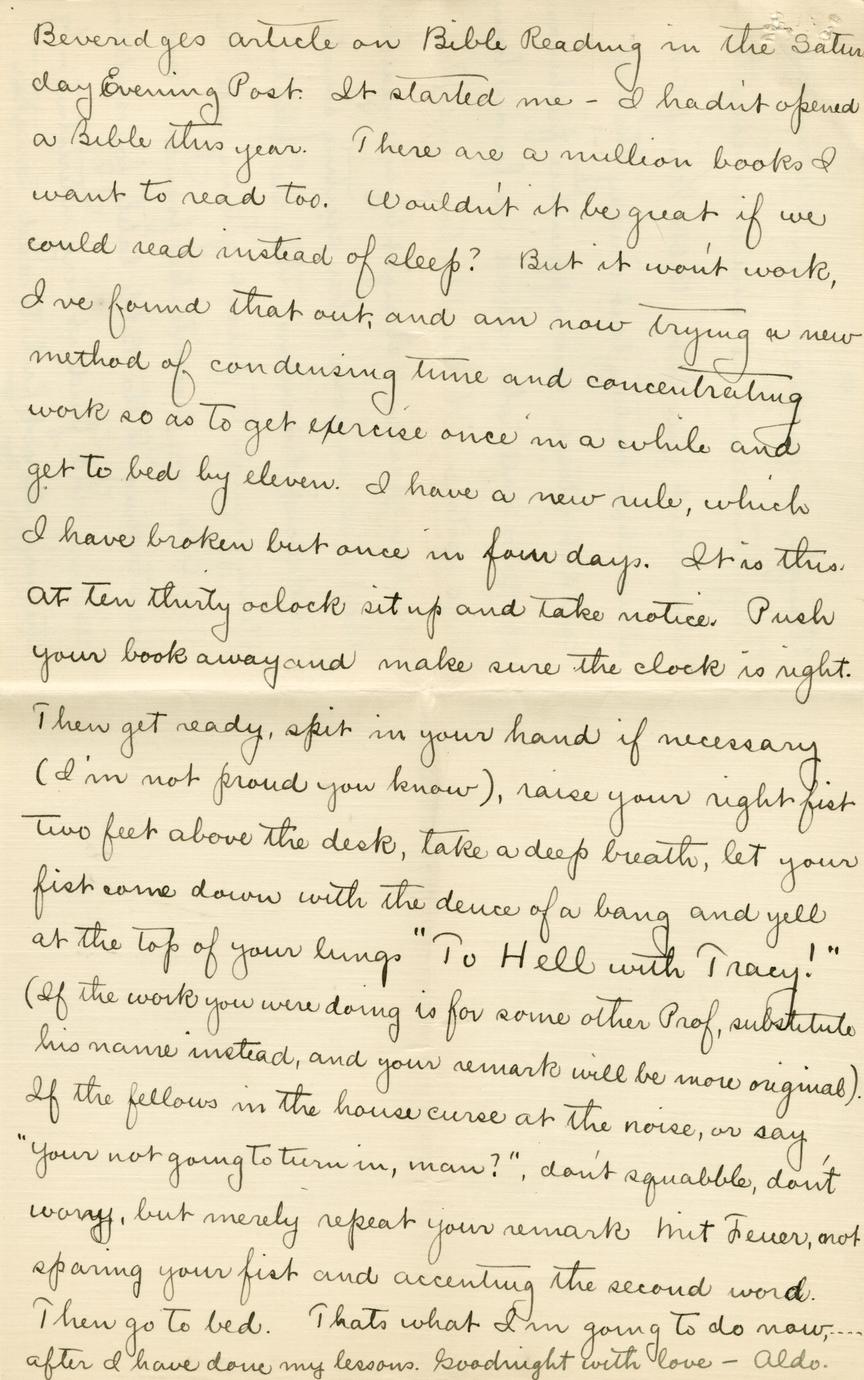 Beveridges article on Bible Reading in the Satur
day Evening Post. It started me - I hadn't opened
a Bible this year. There are a million books I
want to read too. Wouldn't it be great if we
could read instead of sleep? But it won't work,
I've found that out, and am now trying a new
method of condensing time and concentrating
work so as to get exercise once in a while and
get to bed by eleven. I have a new rule, which
I have broken but once in four days. It is this.
At ten thirty oclock sit up and take notice. Push
your book away and make sure the clock is right.
Then get ready, spit in your hand if necessary
(I'm not proud you know), raise your right fist
two feet above the desk, take a deep breath, let your
fist come down with the deuce of a bang and yell
at the top of your lungs "To Hell with Tracy!"
(If the work you were doing is for some other Prof, substitute
his name instead, and your remark will be more original).
If the fellows in the house curse at the noise, or say
"Your not going to turn in, man?", don't squabble, don't
worry, but merely repeat your remark mit Feuer, not
sparing your fist and accenting the second word.
Then go to bed. Thats what I'm going to do now,....
after I have done my lessons. Goodnight with love - Aldo.